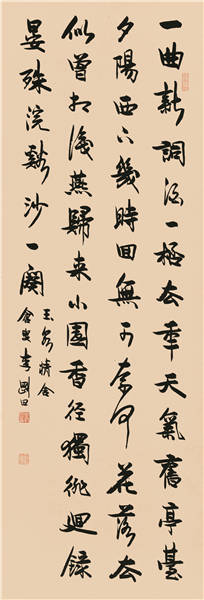 一曲新調酒一桮去年天氣舊亭臺
夕陽西下幾時回無可奈何花落去
似曾相識燕歸来小園香徑獨徘迴錄
晏殊浣谿沙一闋
玉泉精舍
倉叟李剛田